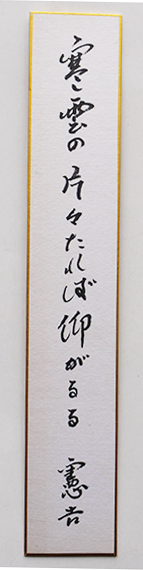 寒雲の片々たれば仰がるる 憲吉